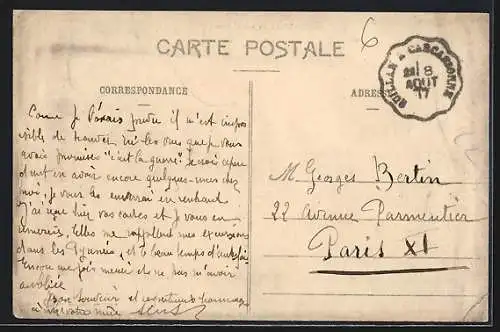 CARTE POSTALE
6
CORRESPONDANCE
ADRESSE
QUILLAN À CARCASSONNE
8
AOUT
17
Comme je prévois il n'est impos
sible de trouver ici les vues que je vous
avais promises "c'est la guerre" Je crois
en avoir encore quelques-unes chez
moi, je vous les enverrai en rentrant
J'ai reçu hier vos cartes et je vous en
remercie, Elles me rappellent mes excursions
dans les Pyrénées, et le beau temps d'autrefois
Encore une fois merci de ne pas m'avoir
oubliée
Bon souvenir et
à votre mère
M Georges Bertin
22 Avenue Parmentier
Paris XI